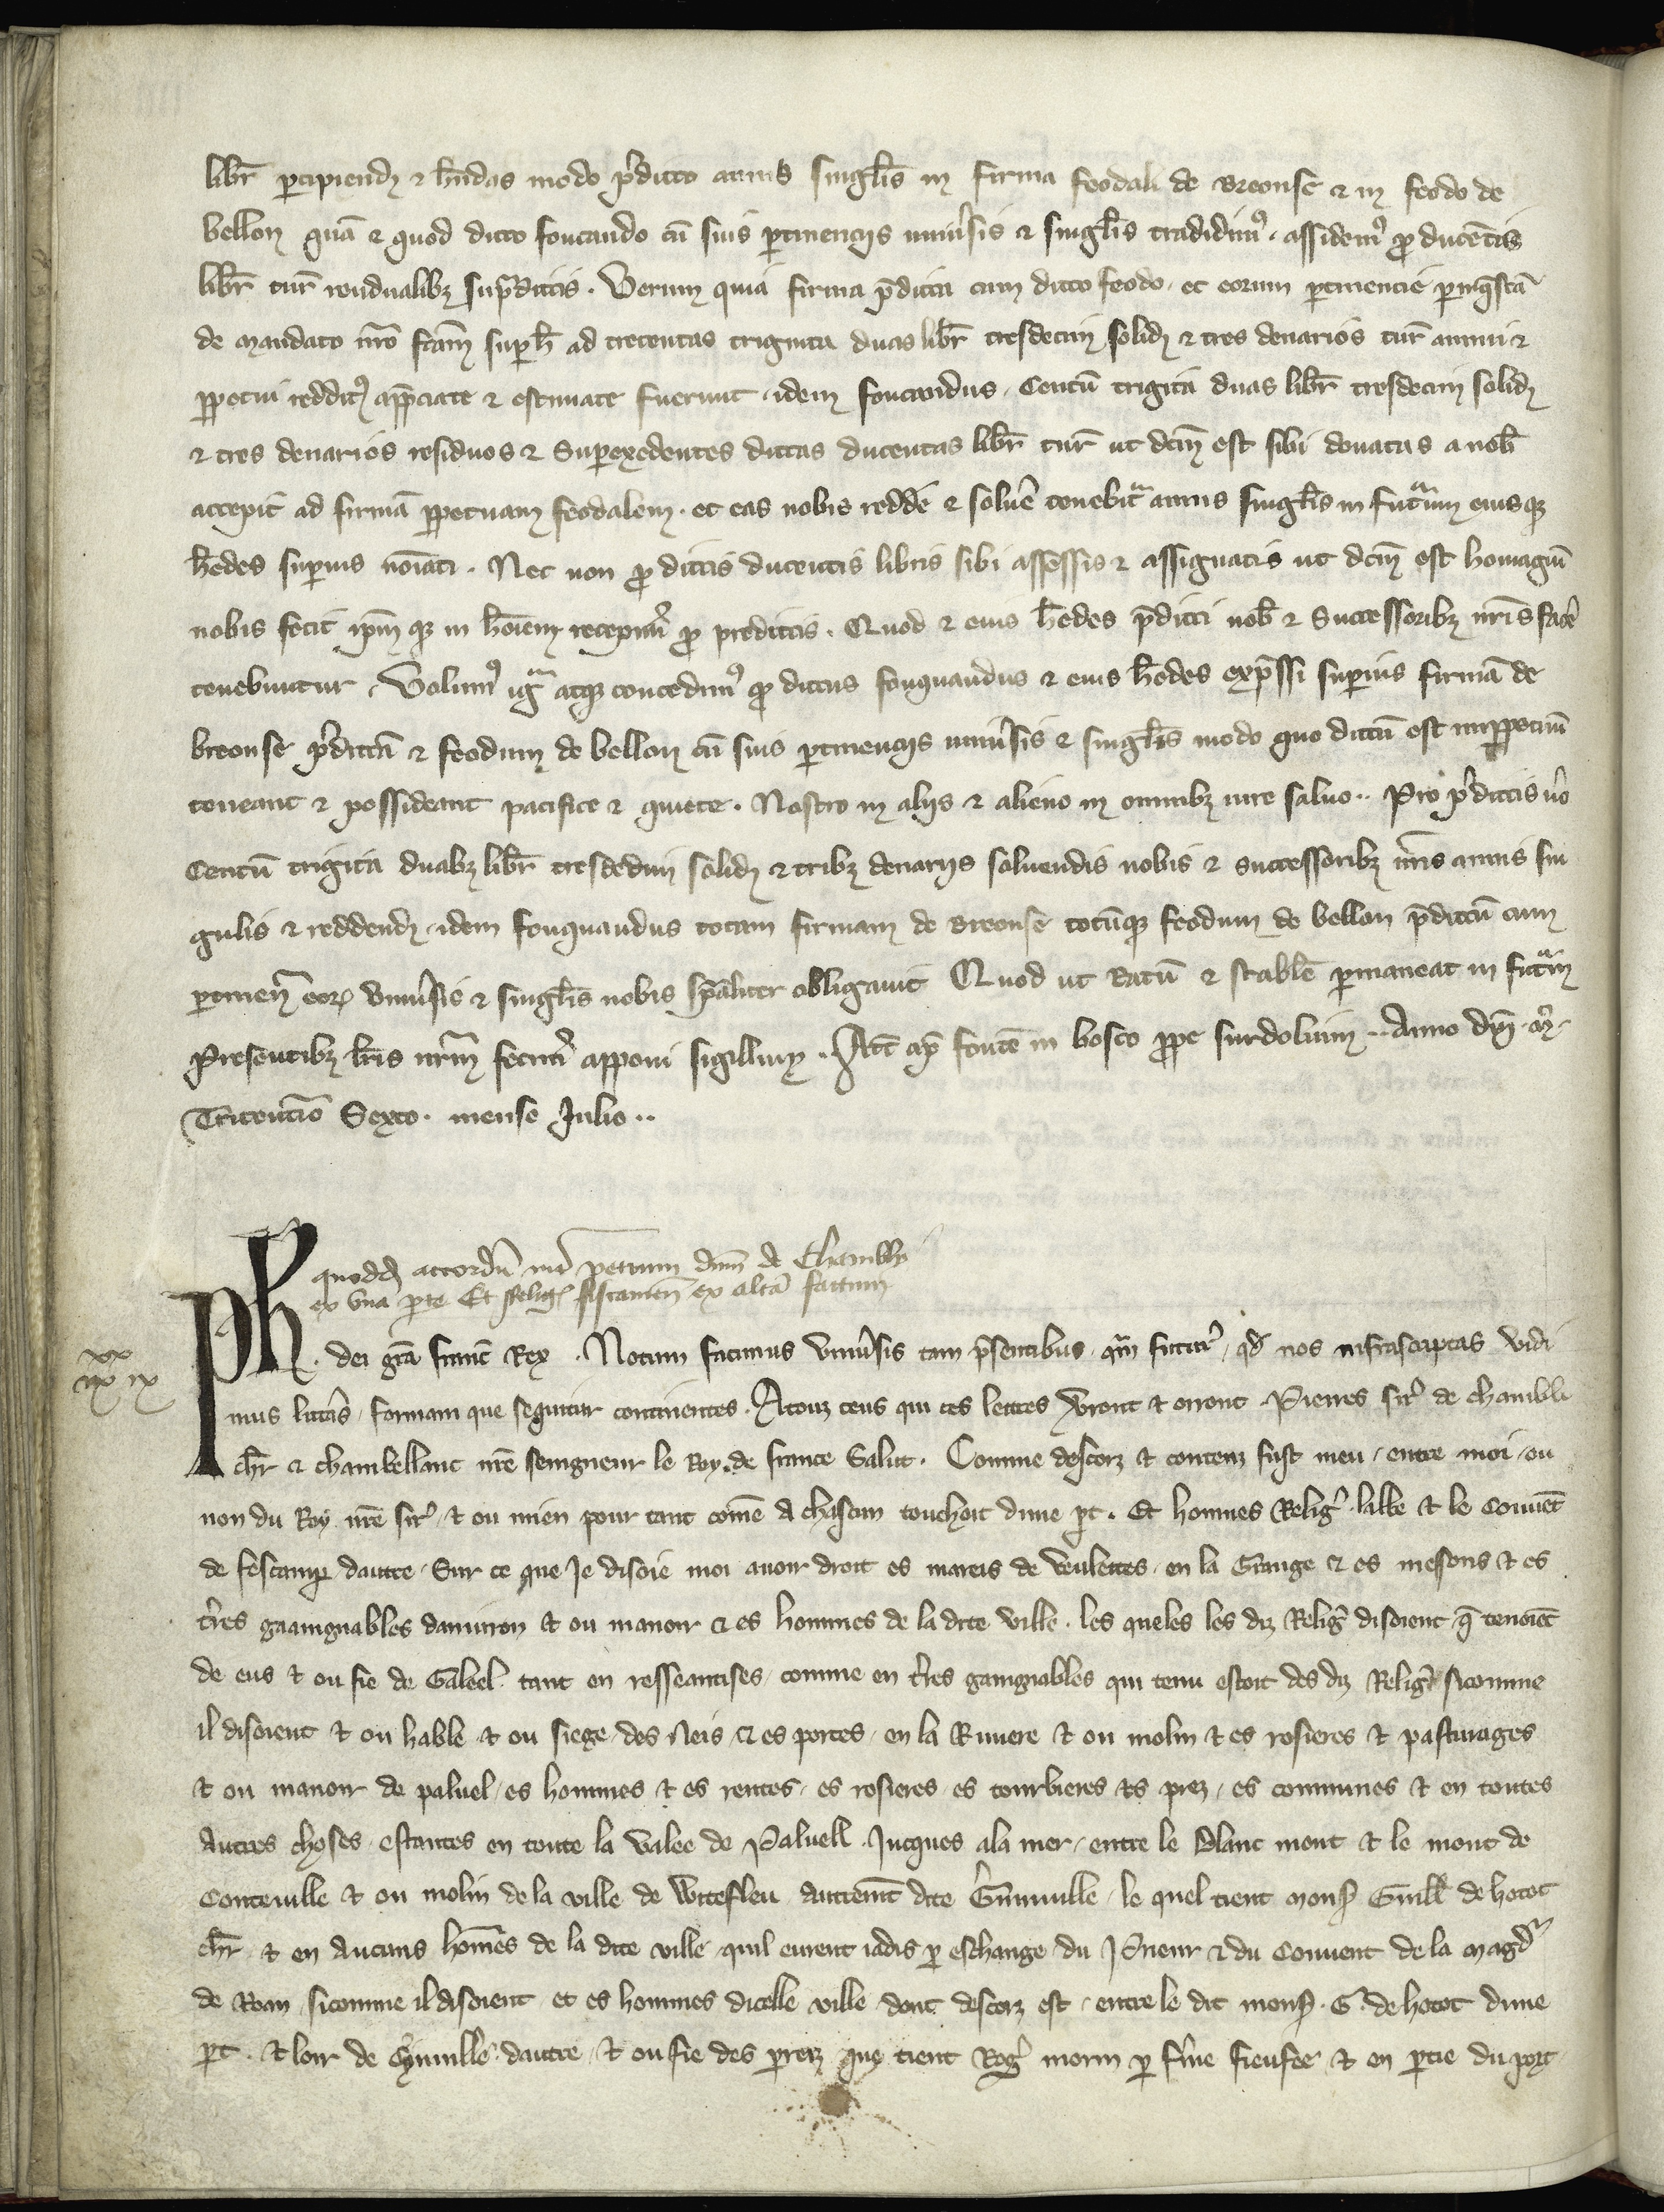 libr̄ ꝑcipiend̄ ⁊ h̄ndas modo p̄dicto annis singl̄is in firma feodali de Breonse ⁊ in feodo de
bellon quā ⁊ quod dicto foucaudo cū suis ꝑtinenciis univ̄sis ⁊ singl̄is tradidimꝰ. assidemꝰ ꝓ ducētis
libr̄ tur̄ rendualibꝫ sup̄dictis. Verum quia firma p̄dicta cum dicto feodo. et eorum ꝑtinencie ꝑ inq̄stā
de mandato nr̄o fc̄am suꝑ h̄ ad trecentas triginta duas libr̄ tresdecim solid̄ ⁊ tres denarios tur̄ annui ⁊
ꝑpetui redditꝰ app̄ciate ⁊ estimate fuerunt. idem foucaudus. Centū trigīta duas libr̄ tresdecim solid̄
⁊ tres denarios residuos ⁊ Suꝑexcedentes dictas ducentas libr̄ tur̄ ut dc̄m est sibi donatas a nob̄
accepit ad firmā ꝑpetuam feodalem. et eas nobis reddē ⁊ solūe tenebit̄ annis singl̄is in futur̄um eiusqꝫ
h̄edes suꝑius noīati. Nec non ꝓ dictis ducentis libris sibi assessis ⁊ assignatis ut dc̄m est homagiū
nobis fecit ip̄m qꝫ in hōiem recepim̄ꝰ ꝓ predictis. Quod ⁊ eius h̄edes p̄dicti nob̄ ⁊ Successoribꝫ nr̄is fac̄e
tenebuntur. Volumꝰ iḡ atqꝫ concedimꝰ qꝫ dictus fouquaudus ⁊ eius h̄edes exp̄ssi suꝑius firmā de
breonse p̄dictā ⁊ feodum de bellon cū suis ꝑtinenciis univ̄sis ⁊ singl̄is modo quo dictū est inꝑpetuū
teneant ⁊ possideant pacifice ⁊ quiete. Nostro in aliis ⁊ alieno in omnibꝫ iure saluo.. Pro p̄dictis v̄o
Centū trigīta duabꝫ libr̄ tresdecim solid̄ ⁊ tribꝫ denariis soluendis nobis ⁊ successoribꝫ nr̄is annis sin
gulis ⁊ reddend̄. idem fouquaudus totam firmam de Breonse totūqꝫ feodum de bellon p̄dictū cum
ꝑtinen̄ eoꝝ univ̄sis ⁊ singl̄is nobis sp̄aliter obligauit Quod ut Ratū ⁊ stabile ꝑmaneat in futur̄
Presentibꝫ lr̄is nr̄um fecim̄ꝰ apponi sigillum. Act̄ ap̄ fontē in bosco ꝓpe surdolium.. Anno dn̄i. m̄.
Tricentiō Sexto. mense Julio..
quodd̄ accordū int̄ petrum dn̄m de Chambly
ex una ꝑte Et Reliḡ fiscamen̄ ex altā factum
xx
iiii ix
Ph̄. dei grā franc̄ Rex. Notum facimus univ̄sis tam p̄sentibus. qm̄ futur̄. qd̄ nos infrascriptas vidi
mus litt̄as. formam que sequitur continentes. Atouz ceus qui ces lettres v̄ront et orront. Pierres sir̄ de chambli
ch̄r ⁊ chambellanc nr̄e seingneur le Roy de france Salut. Comme descorz et contenz fust meu. entre moi. ou
non du Roy nr̄e sir̄. et ou mien pour tant com̄e a chascun touchoit dune ꝑt. Et hommes Reliḡ. labbe et le Couuēt
de fescamp dautre. Sur ce que Je disoie moi auoir droit es mareis de Veulettes. en la Grange ⁊ es mesons et es
t̄res gaaingnables danuiron et ou manoir ⁊ es hommes de la dite ville. les queles les diz Reliḡ disoient q̄ tenoiēt
de eus et ou fie de Galeel. tant en resseantises. comme en t̄res gaingnables qui tenu estoit des diz Reliḡ sicomme
il disoient et ou hable et ou siege des Neis. ⁊ es portes. en la Riuiere et ou molin et es rosieres et pasturages
et ou manoir de paluel. es hommes et es rentes. es rosieres es tourbieres es prez. es communes et en toutes
autres choses. estantes en toute la Valee de Paluell. Jucques ala mer. entre le Blanc mont et le mont de
Conteuille et ou molin de la ville de Witefleu autrem̄t dite Gr̄inuille. le quel tient mons̄ Guill̄ de hotot
ch̄r. et en Aucuns hom̄es de la dite ville. quil eurent iadis ꝑ eschange du Prieur ⁊ du Couuent de la magd̄
de Roan. sicomme il disoient et es hommes dicelle ville dont descorz est. entre le dit mons̄. G. de hotot dune
ꝑt. et loir de Gr̄inuille dautre. et ou fie des prez que tient Roḡ morin ꝑ f̄me fieufee et en ꝑtie du port